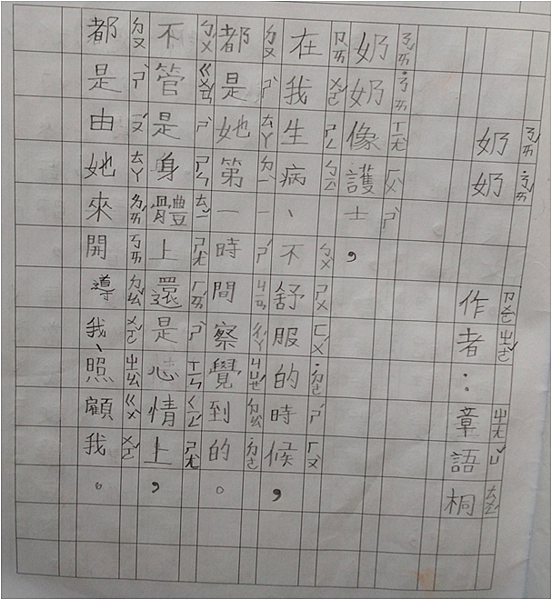 奶奶
作者：章語桐
奶奶像護士，
在我生病、不舒服的時候，
都是她第一時間察覺到的。
不管是身體上還是心情上，
都是由她來開導我、照顧我。